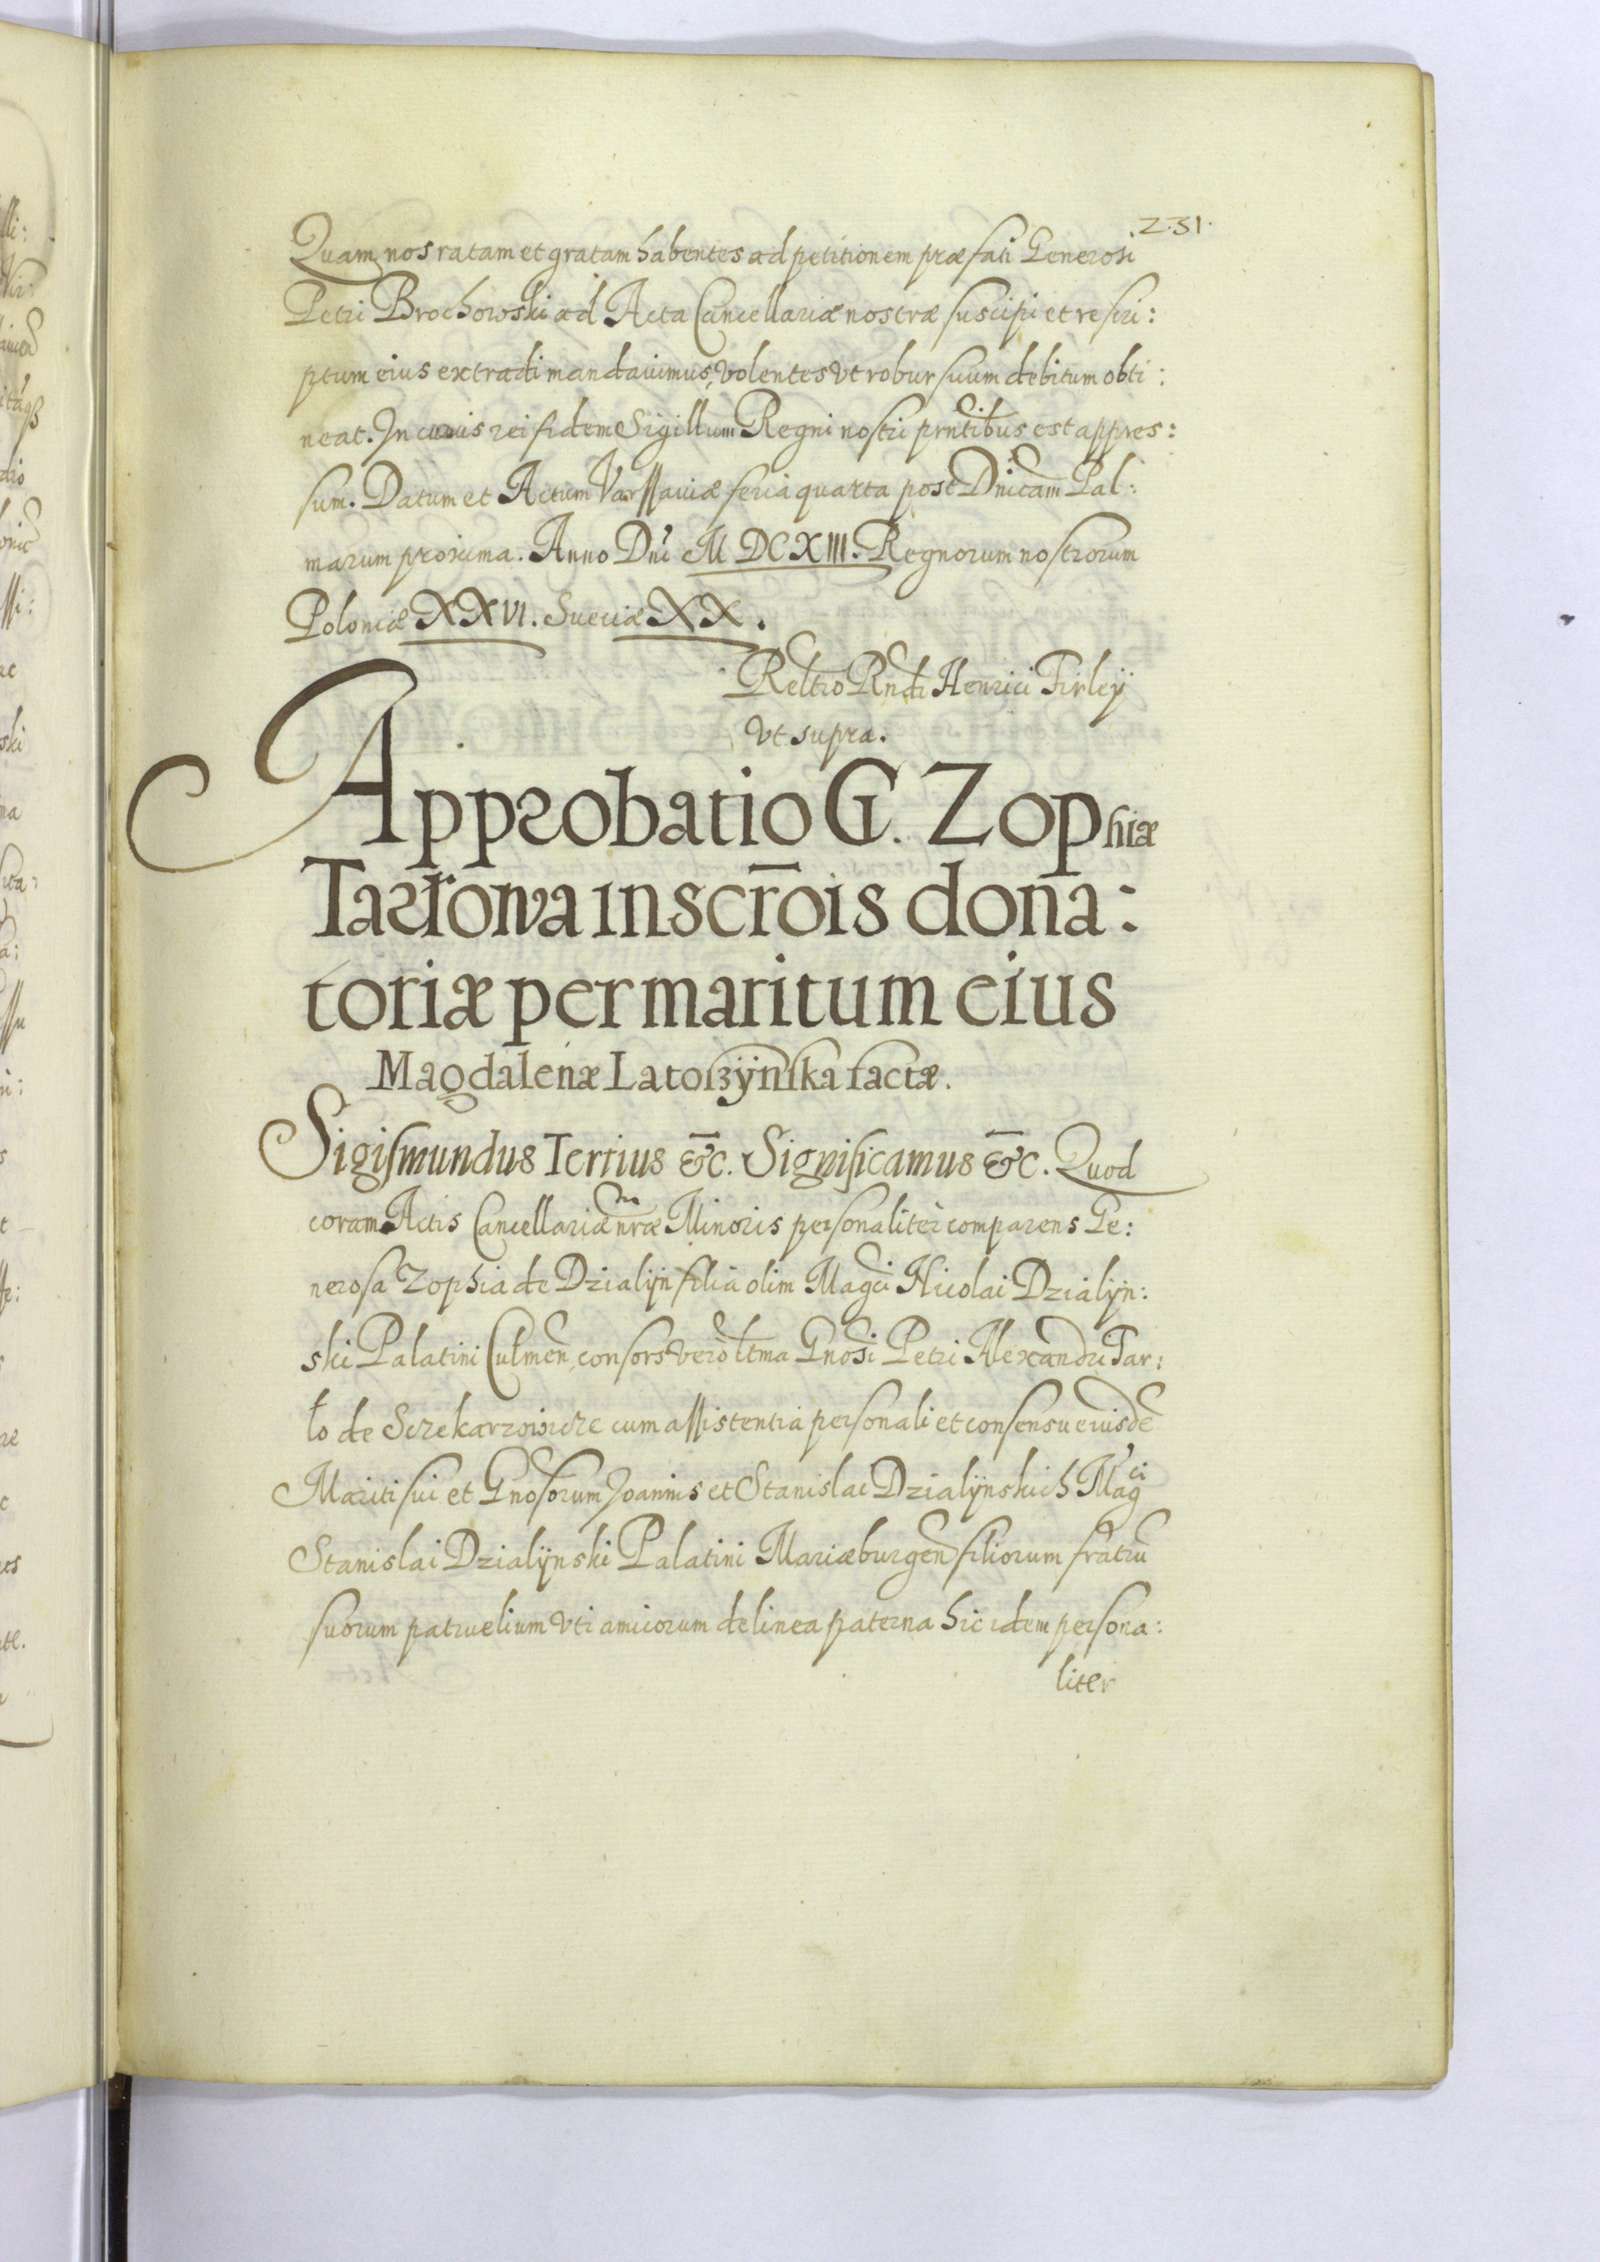 231.
Quam nos ratam et gratam habentes ad petitionem præfati Generosi
Petri Brochowski ad Acta Cancellariæ nostræ suscipi et rescri:
ptum eius extradi mandavimus, volentes vt robur suum debitum obti:
neat. In cuius rei fidem Sigillum Regni nostri prntibus est appres:
sum. Datum et Actum Varssaviæ feria quarta post Dnicam Pal:
marum proxima. Anno Dni M DCXIII. Regnorum nostrorum
Poloniæ XXVI. Sueciæ XX.
Reltio Rndi Henrici Firleÿ
vt supra.
Approbatio G. Zophiæ
Tarłowa inscrōis dona:
toriæ per maritum eius
Magdalenæ Latoszÿnska factæ.
Sigismundus Tertius &c. Significamus &c. Quod
coram Actis Cancellariæ nræ Minoris personaliter comparens Ge:
nerosa Zophia de Dzialÿn filia olim Magci Nicolai Dzialÿn:
ski Palatini Culmen, consors vero ltma Gnosi Petri Alexandri Tar:
ło de Sczekarzowicze cum assistentia personali et consensu eiusdē
Mariti sui et Gnosorum Joannis et Stanislai Dzialÿnskich Magci
Stanislai Dzialÿnski Palatini Mariæburgen filiorum fratrū
suorum patruelium vti amicorum de linea paterna hic idem persona:
liter